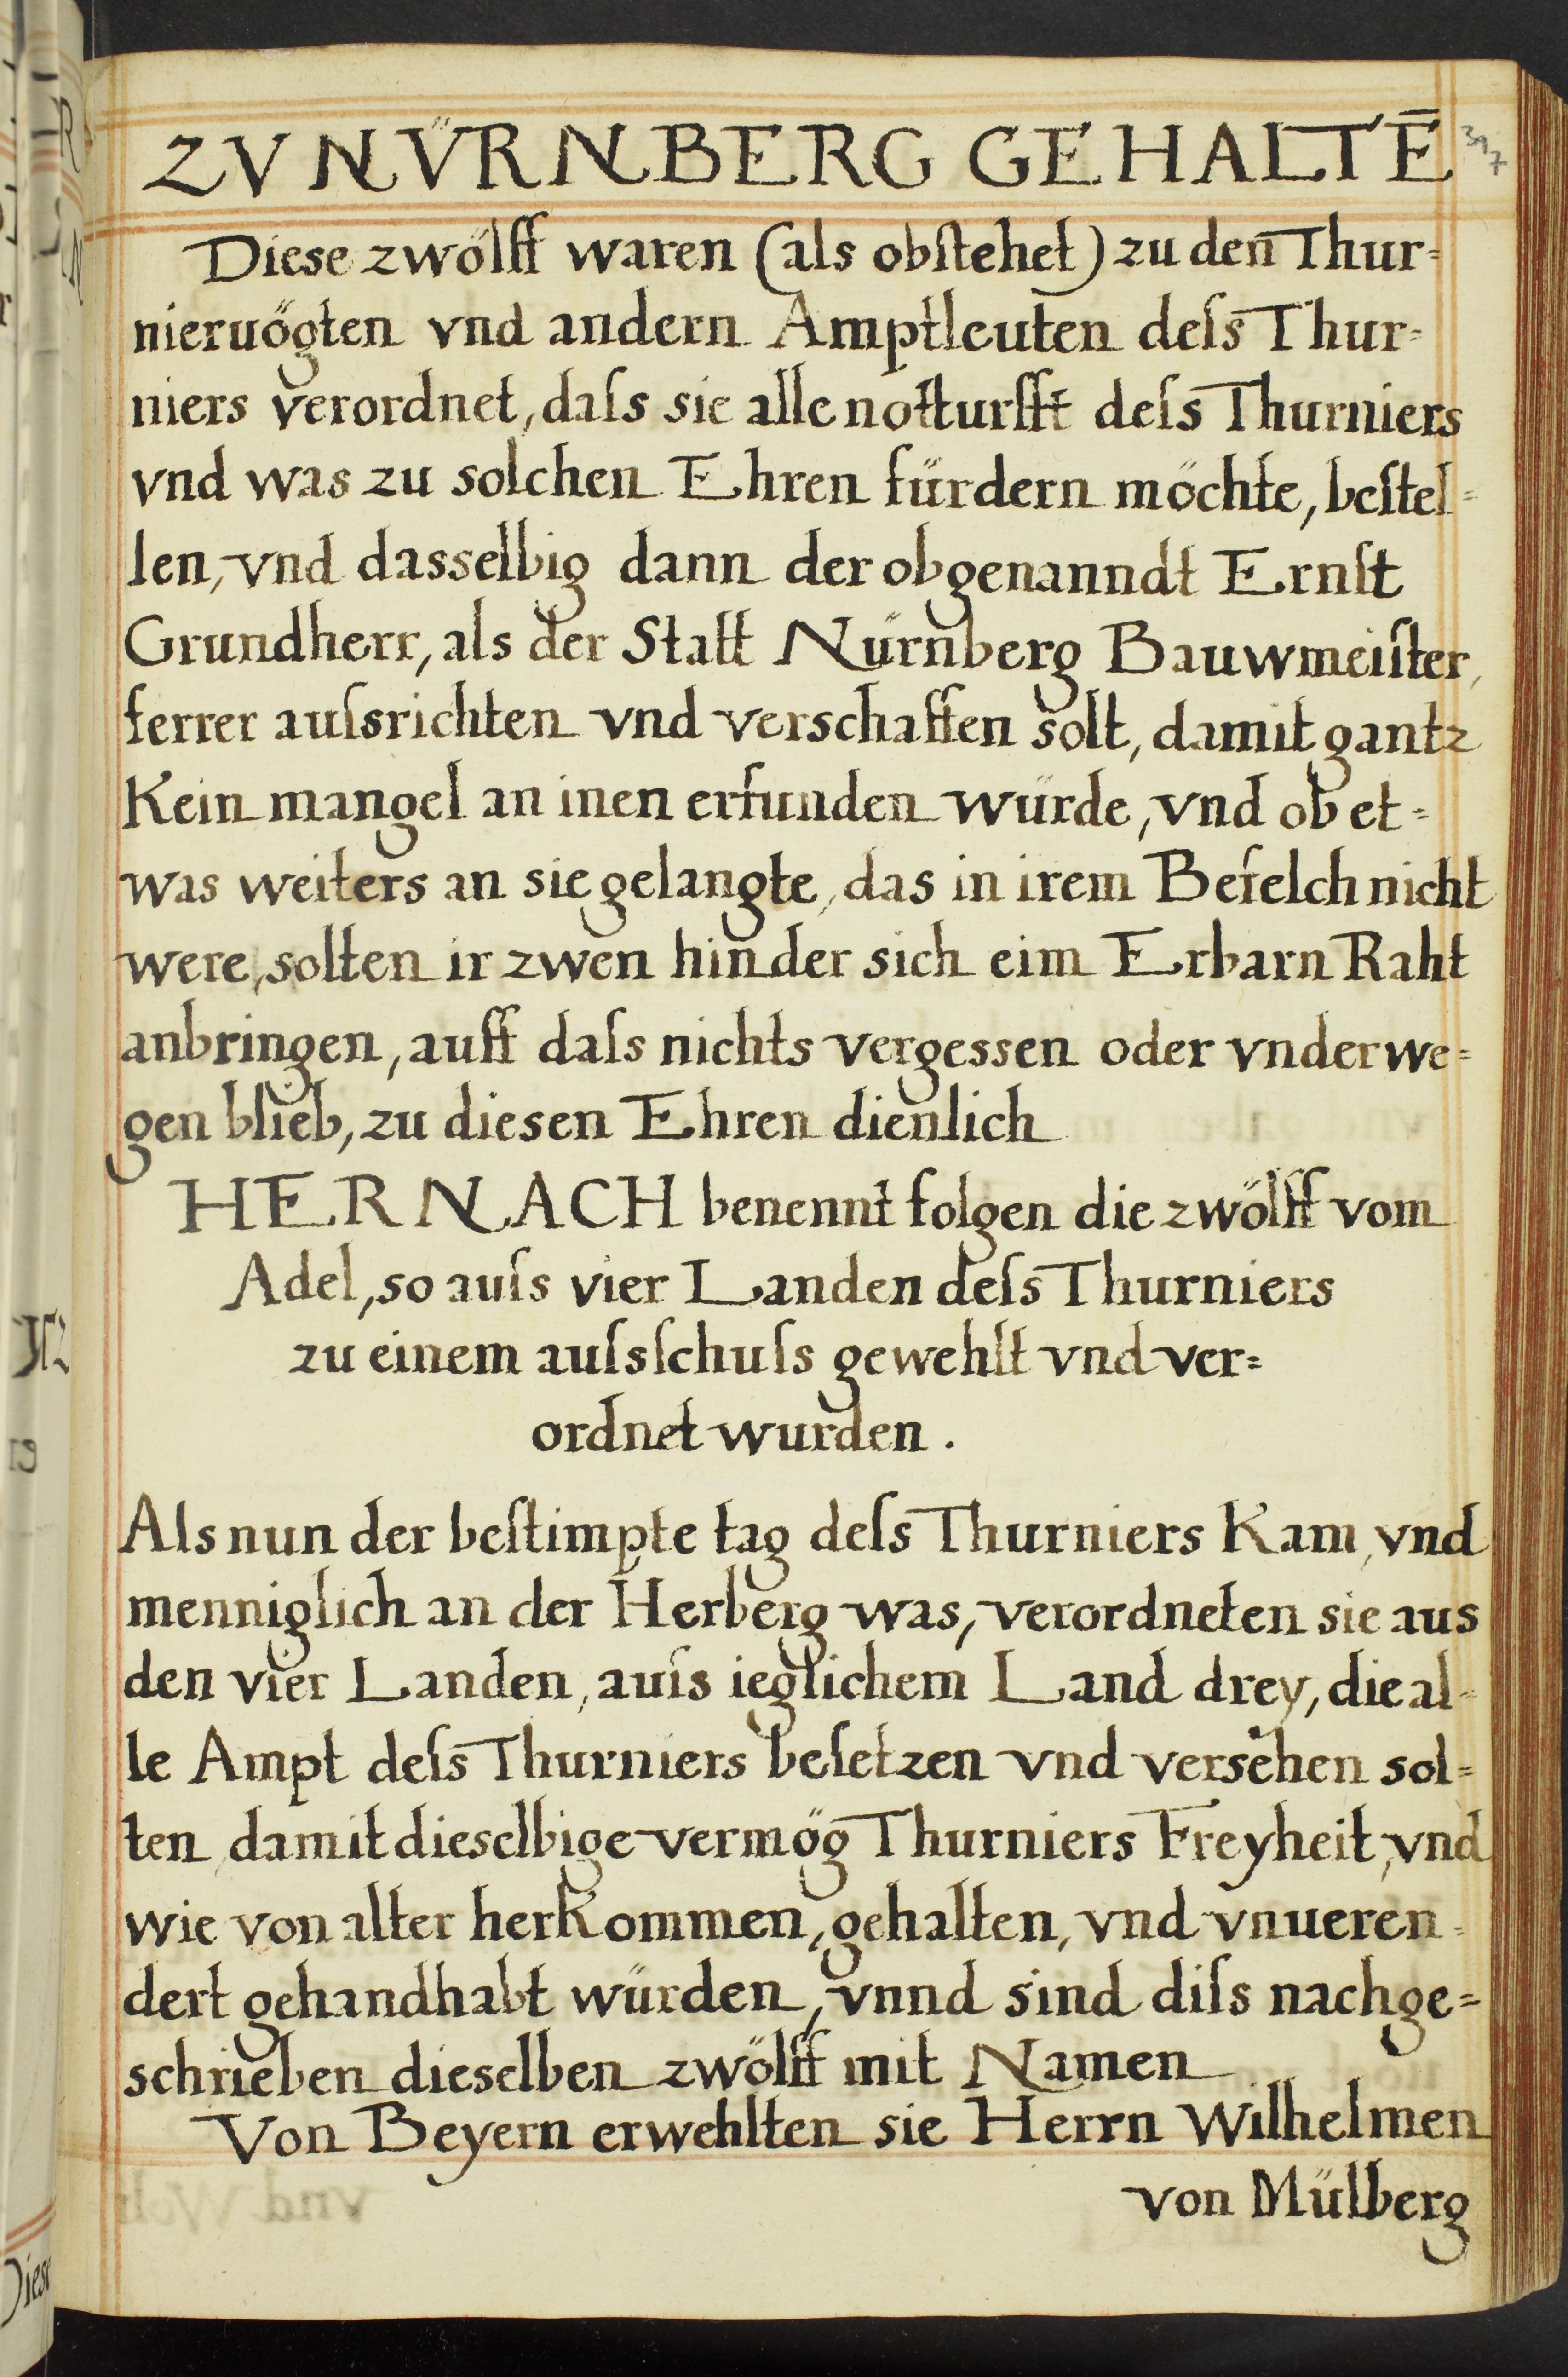 ZV NVRNBERG GEHALTĒ
317
Diese zwölff waren (als obſtehet) zu den Thur=
nieruögten vnd andern Amptleuten deſs Thur=
niers verordnet, daſs sie alle notturfft deſs Thurniers
vnd was zu solchen Ehren fürdern möchte, beſtel=
len, vnd dasselbig dann der obgenanndt Ernſt
Grundherr, als der Statt Nürnberg Bauwmeiſter,
ferrer auſsrichten vnd verschaffen solt, damit gantz
Kein mangel an inen erfunden würde, vnd ob et=
was weiters an sie gelangte, das in irem Befelch nicht
were, solten ir zwen hinder sich eim Erbarn Raht
anbringen, auff daſs nichts vergessen oder vnderwe=
gen blieb, zu diesen Ehren dienlich
HERNACH benennt folgen die zwölff vom
Adel, so auſs vier Landen deſs Thurniers
zu einem auſsſchuſs gewehlt vnd ver=
ordnet wurden.
Als nun der beſtimpte tag deſs Thurniers Kam, vnd
menniglich an der Herberg was, verordneten sie aus
den vier Landen, auſs ieglichem Land drey, die al=
le Ampt deſs Thurniers beſetzen vnd versehen sol=
ten, damit dieselbige vermög Thurniers Freyheit, vnd
wie von alter herKommen, gehalten, vnd vnueren=
dert gehandhabt würden, vnnd sind diſs nachge=
schrieben dieselben zwölff mit Namen
Von Beyern erwehlten sie Herrn Wilhelmen
von Mülberg